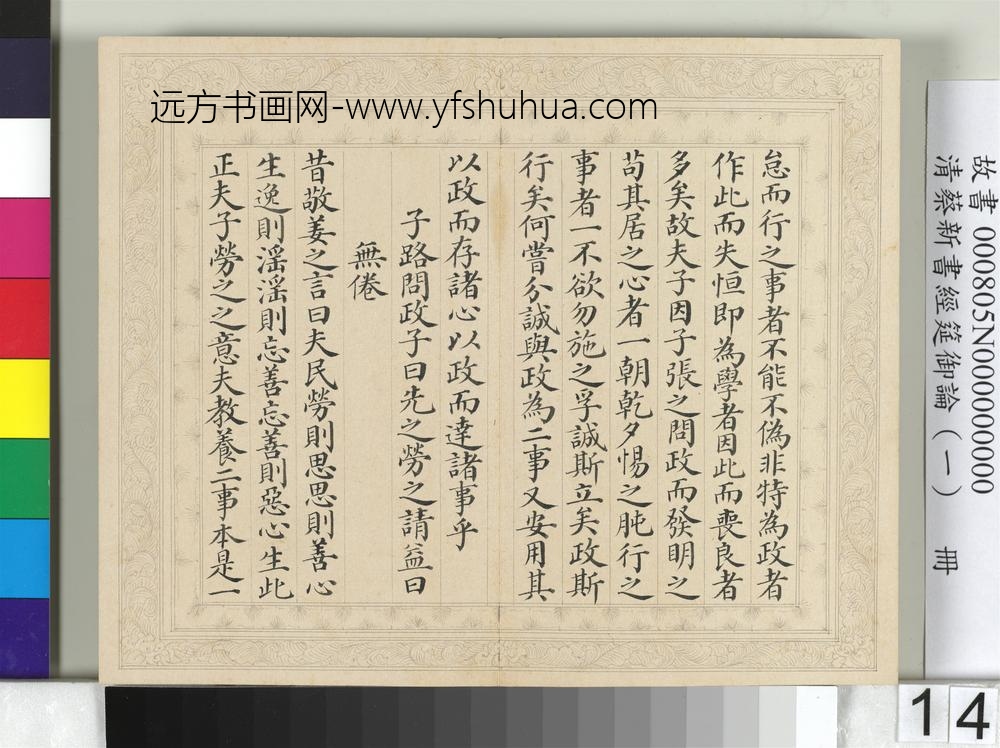 远方书画网-www.yfshuhua.com
怠而行之事者不能不偽非特為政者
作此而失恒即為學者因此而喪良者
多矣故夫子因子張之問政而發明之
苟其居之心者一朝乾夕惕之肫行之
事者一不欲勿施之孚誠斯立矣政斯
行矣何嘗分誠與政為二事又安用其
以政而存諸心以政而達諸事乎
子路問政子曰先之勞之請益曰
無倦
昔敬姜之言曰夫民勞則思思則善心
生逸則滛滛則忘善忘善則惡心生此
正夫子勞之之意夫教養二事本是一
故書 000805N000000000
清蔡新書經筵御論（一） 冊
14